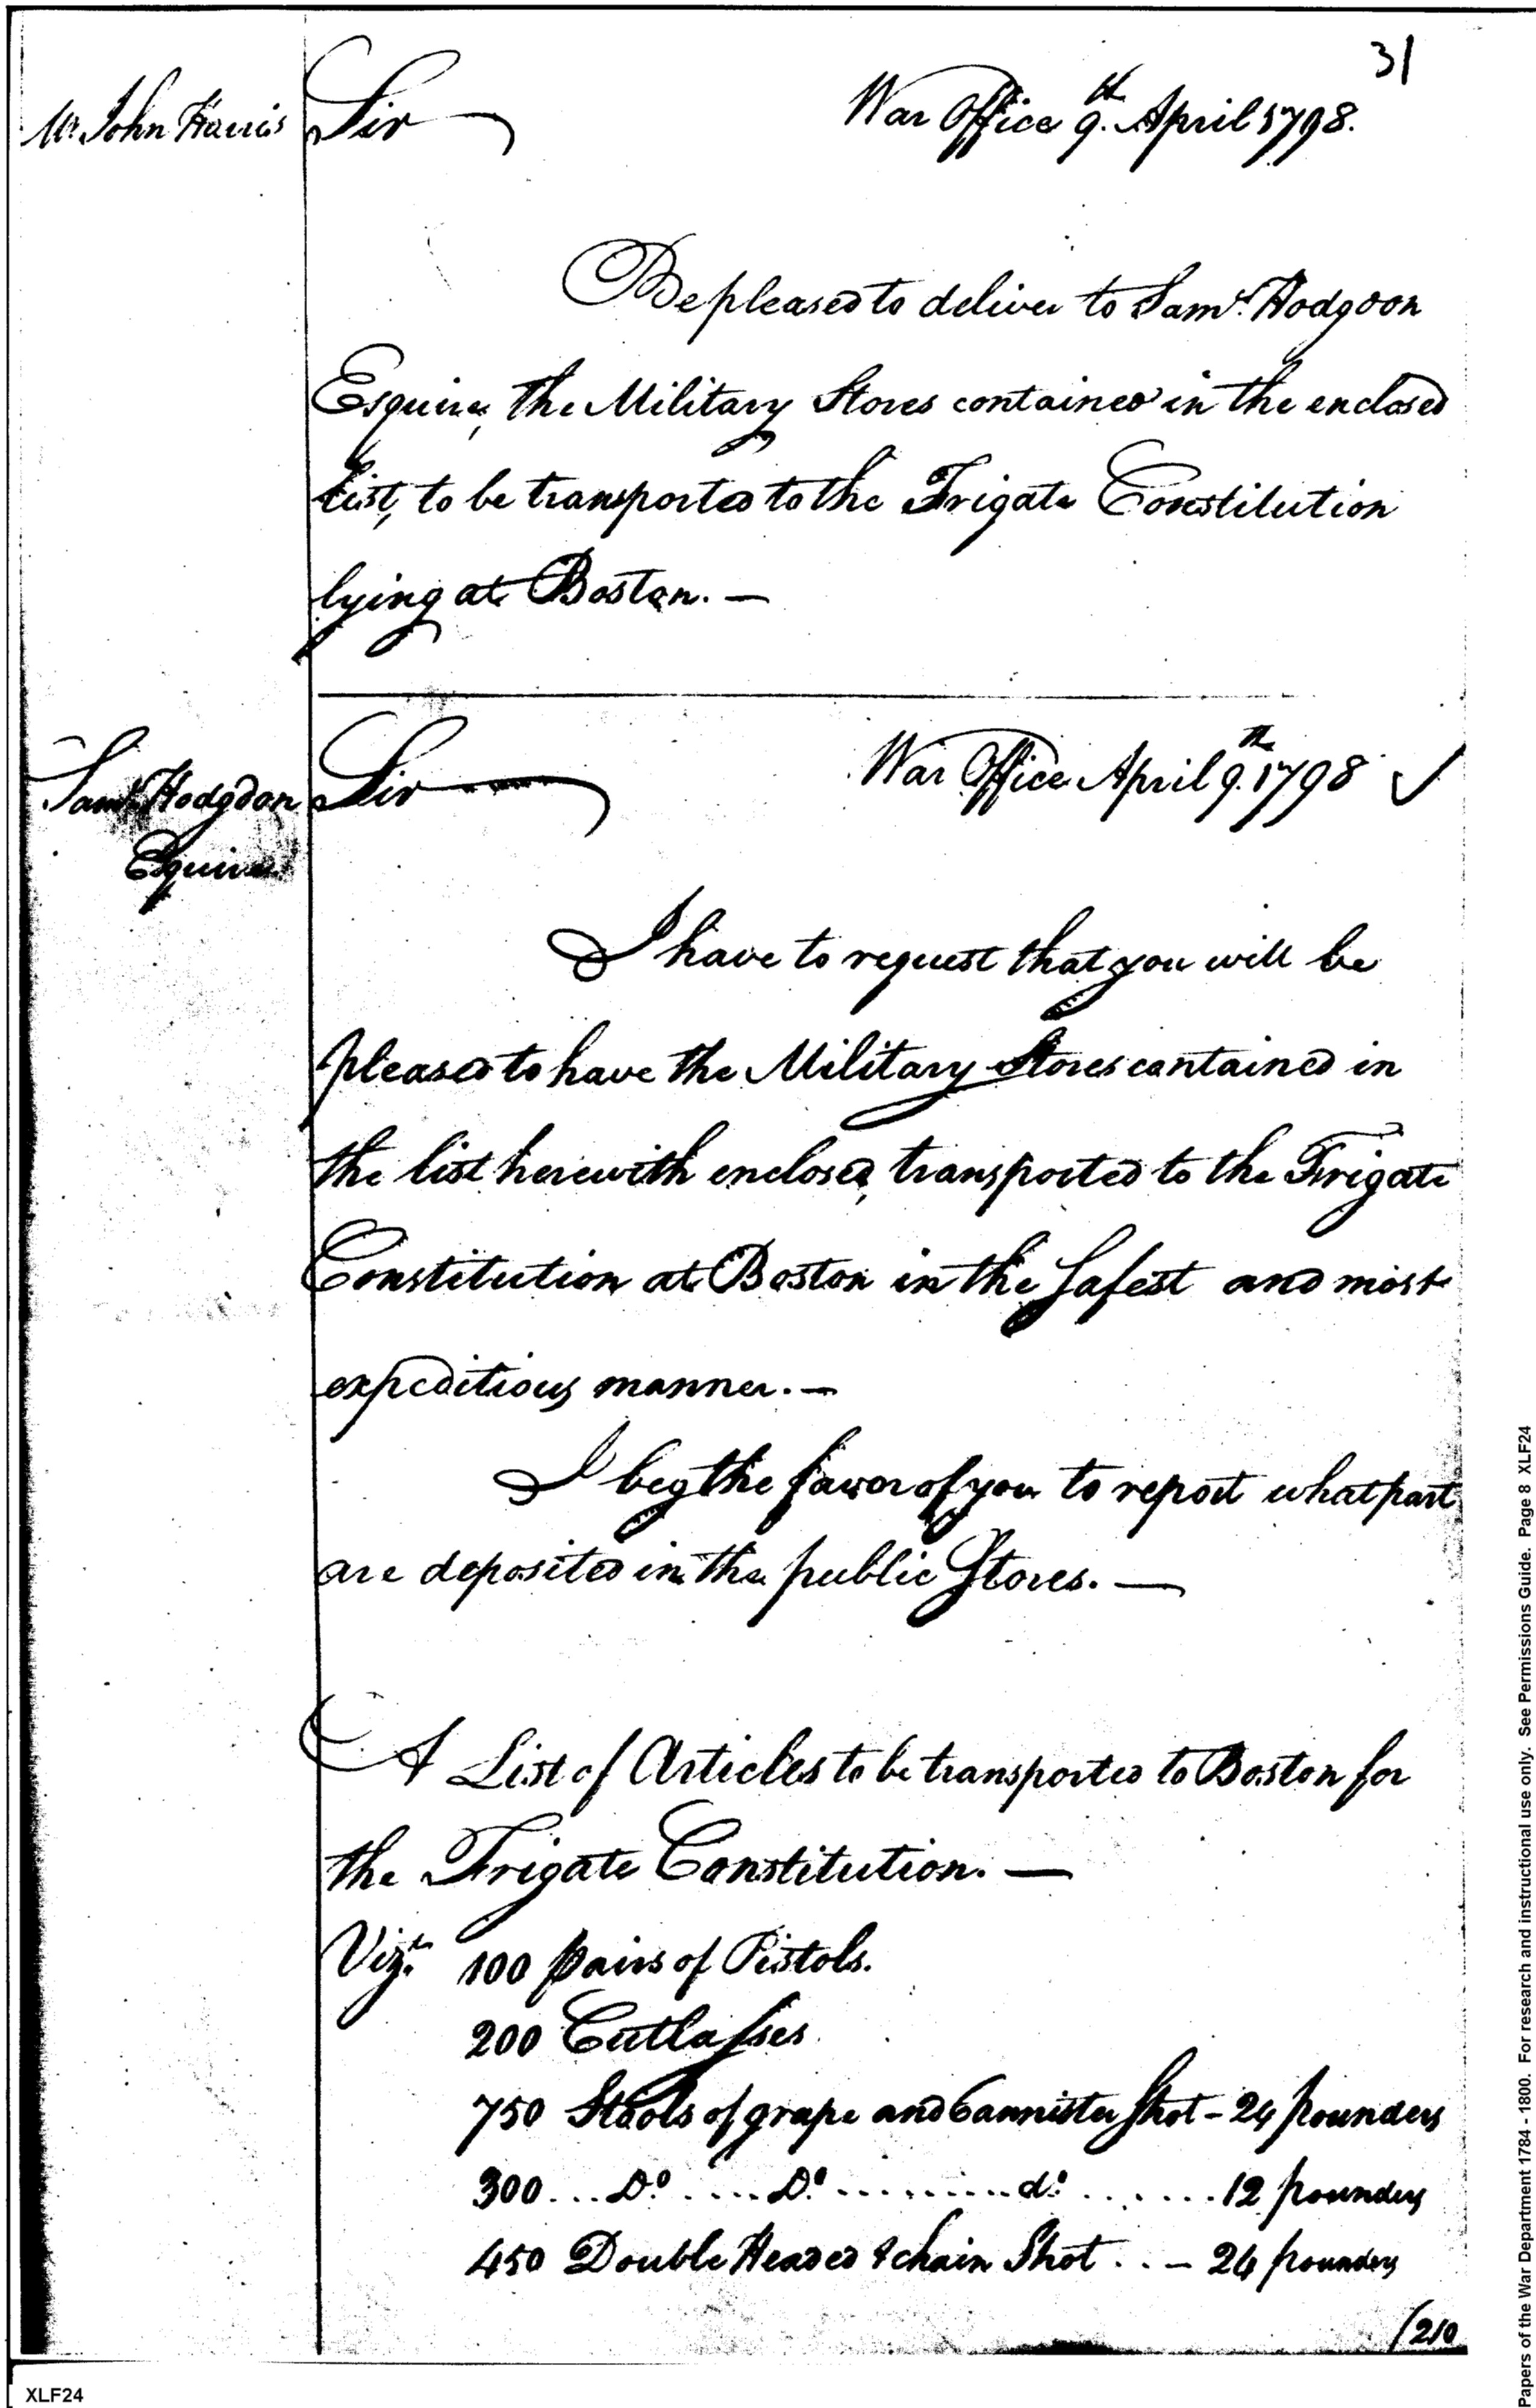 31
Mr. John Harris
Sir
War Office 9th. April 1798.
Be pleased to deliver to Saml. Hodgdon
Esquire, the Military Stores contained in the enclosed
List, to be transported to the Frigate Constitution
lying at Boston. —
Saml. Hodgdon
Esquire
Sir
War Office April 9th. 1798
I have to request that you will be
pleased to have the Military Stores contained in
the list herewith enclosed, transported to the Frigate
Constitution at Boston in the Safest and most
expeditious manner. —
I beg the favor of you to report what part
are deposited in the public Stores. —
A List of Articles to be transported to Boston for
the Frigate Constitution. —
Vizt. 100 pairs of Pistols.
200 Cutlasses
750 Stools of grape and Cannister Shot - 24 pounders
300 ... Do. .... Do. ......... do. ....... 12 pounders
450 Double Headed & chain Shot . . - 24 pounders
/210
Papers of the War Department 1784 - 1800. For research and instructional use only. See Permissions Guide. Page 8 XLF24
XLF24